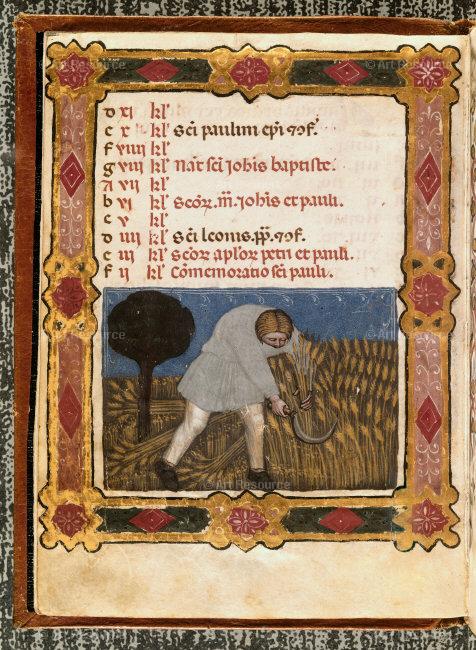 d xi kl'
c x kl' Sci paulini epi ⁊ ɔf.
f viiii kl'
g viii kl' Nat' sci iohis baptiste.
A vii kl'
b vi kl' Scoꝝ. m̄. iohis et pauli.
c v kl'
d iiii kl' Sci leonis. pp̄. ⁊ ɔf.
e iii kl' Scoꝝ aploꝝ petri et pauli.
f ii kl' Cōmemoratio sci pauli.
© Art Resource
© Art Resource
© Art Resource
© Art Resource
© Art Resource
© Art Resource